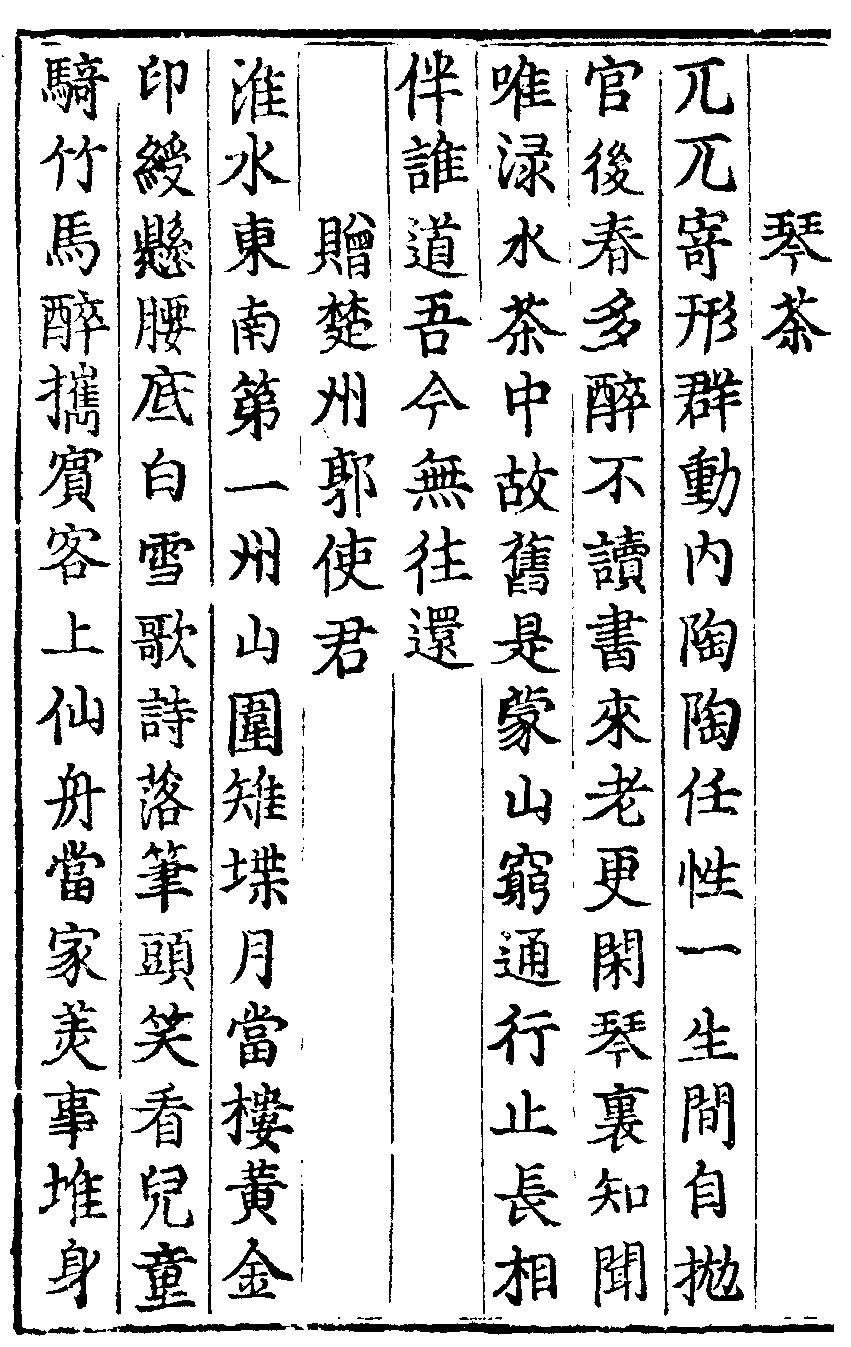 琴茶
兀兀寄形群動内陶陶任性一生間自抛
官後春多醉不讀書來老更閑琴裏知聞
唯渌水茶中故舊是蒙山窮通行止長相
伴誰道吾今無往還
贈楚州郭使君
淮水東南第一州山圍雉堞月當樓黃金
印綬懸腰底白雪歌詩落筆頭笑看兒童
騎竹馬醉攜賓客上仙舟當家美事堆身